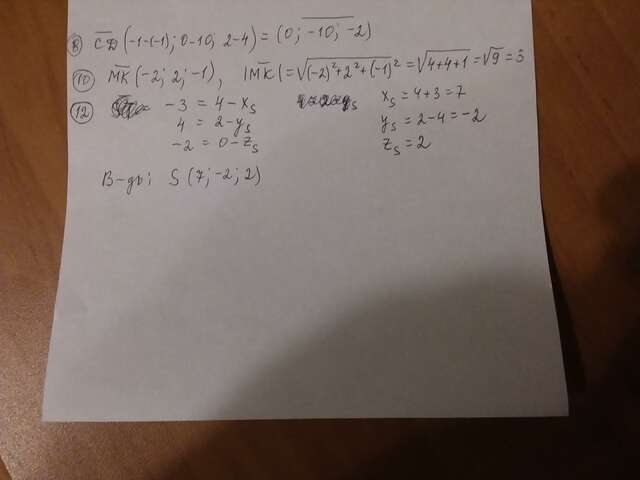 8) C̅D̅ (-1-(-1); 0-10; 2-4) = (0; -10; -2)
10) M̅K̅ (-2; 2; -1), |M̅K̅| = √(-2)²+2²+(-1)² = √4+4+1 = √9 = 3
12) -3 = 4 - xₛ xₛ = 4+3 = 7
4 = 2 - yₛ yₛ = 2-4 = -2
-2 = 0 - zₛ zₛ = 2
В-дь; S (7; -2; 2)